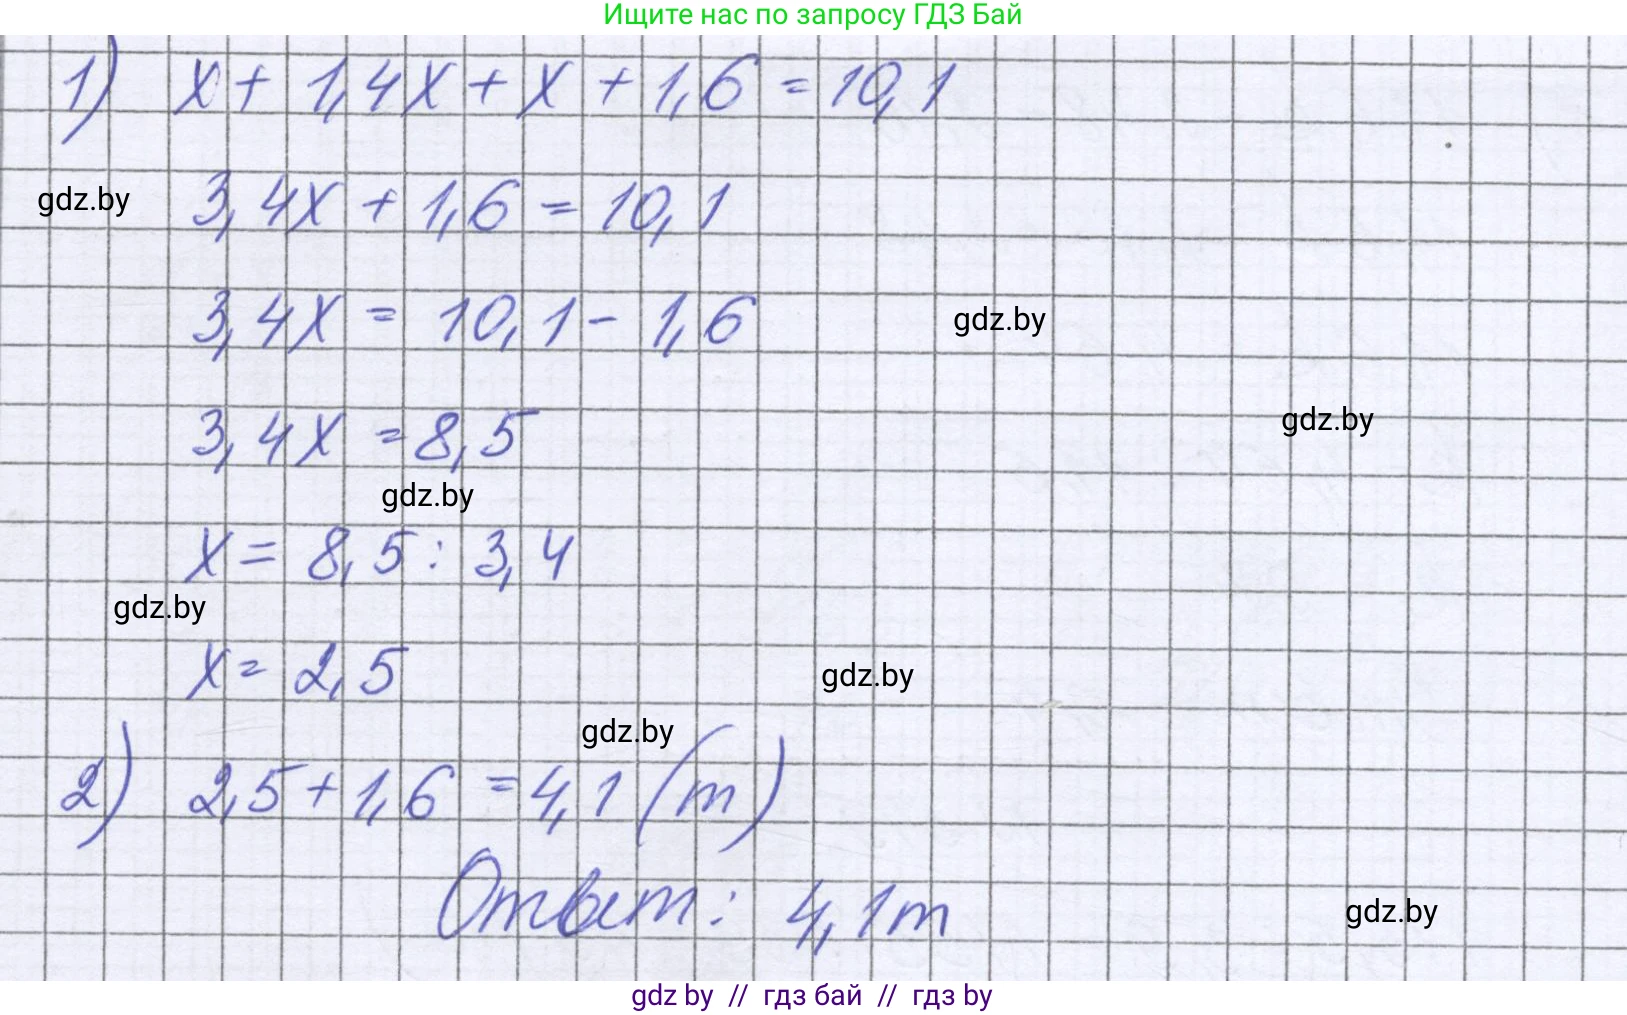 Ищите нас по запросу ГДЗ Бай
1) x + 1,4x + x + 1,6 = 10,1
gdz.by
3,4x + 1,6 = 10,1
3,4x = 10,1 - 1,6
gdz.by
3,4x = 8,5
gdz.by
gdz.by
x = 8,5 : 3,4
gdz.by
x = 2,5
gdz.by
gdz.by
2) 2,5 + 1,6 = 4,1 (т)
Ответ: 4,1 т
gdz.by
gdz by // гдз бай // гдз by